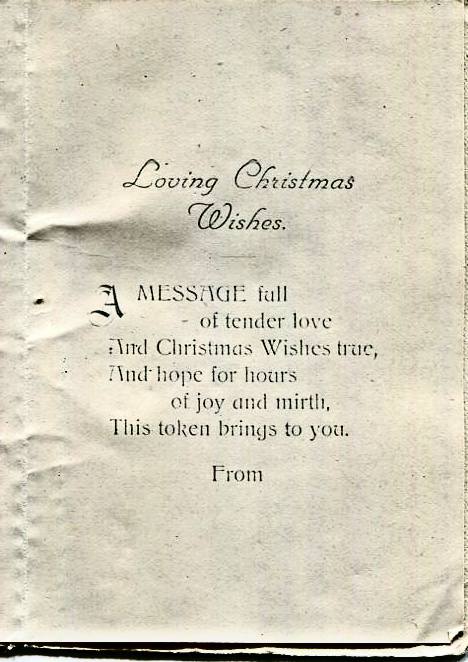 Loving Christmas
Wishes.
A MESSAGE full
of tender love
And Christmas Wishes true,
And hope for hours
of joy and mirth,
This token brings to you.
From